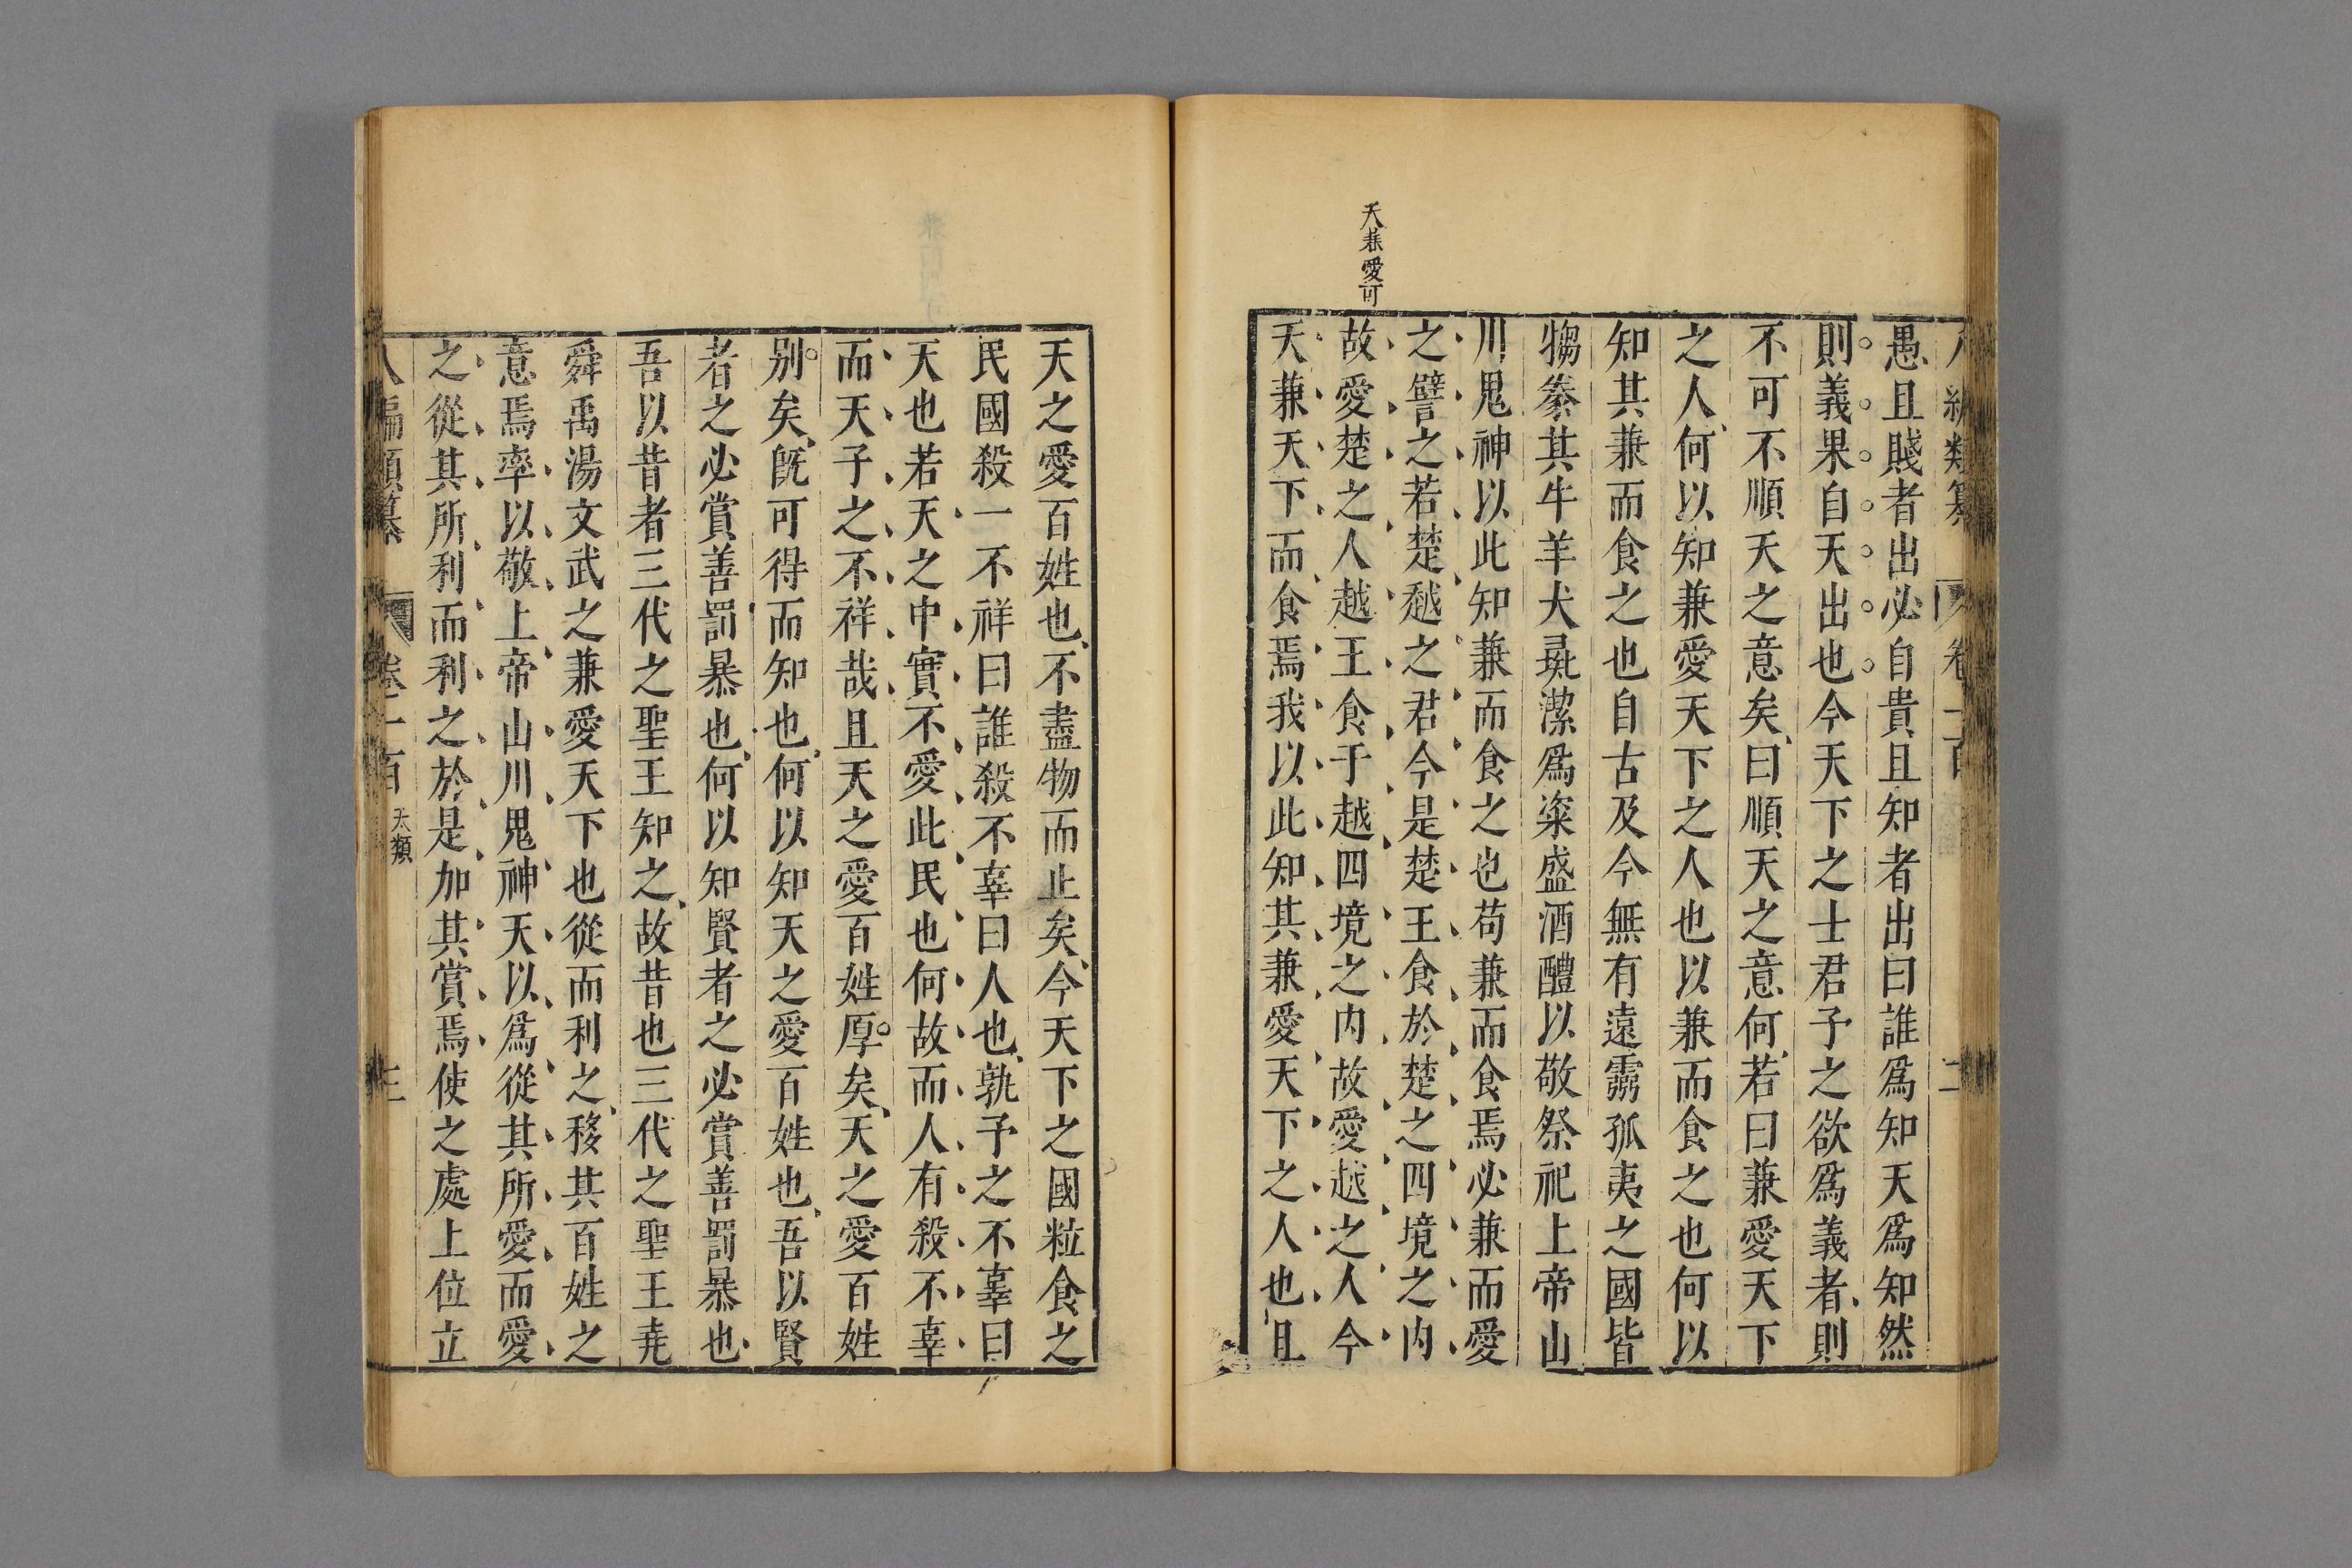 八編類纂 卷一百 二
愚且賤者出必自貴且知者出曰誰爲知天爲知然
則義果自天出也今天下之士君子之欲爲義者則
不可不順天之意矣曰順天之意何若曰兼愛天下
之人何以知兼愛天下之人也以兼而食之也何以
知其兼而食之也自古及今無有遠靈孤夷之國皆
犓豢其牛羊犬彘潔爲粢盛酒醴以敬祭祀上帝山
川鬼神以此知兼而食之也苟兼而食焉必兼而愛
之譬之若楚越之君今是楚王食於楚之四境之內
天兼愛可
故愛楚之人越王食于越四境之内故愛越之人今
天兼天下而食焉我以此知其兼愛天下之人也且
天之愛百姓也不盡物而止矣今天下之國粒食之
民國殺一不祥曰誰殺不辜曰人也孰予之不辜曰
天也若天之中實不愛此民也何故而人有殺不辜
而天子之不祥哉且天之愛百姓厚矣天之愛百姓
别矣旣可得而知也何以知天之愛百姓也吾以賢
者之必賞善罰暴也何以知賢者之必賞善罰暴也
吾以昔者三代之聖王知之故昔也三代之聖王堯
舜禹湯文武之兼愛天下也從而利之移其百姓之
意焉率以敬上帝山川鬼神天以爲從其所愛而愛
之從其所利而利之於是加其賞焉使之處上位立
八編類纂 卷一百 天類 三